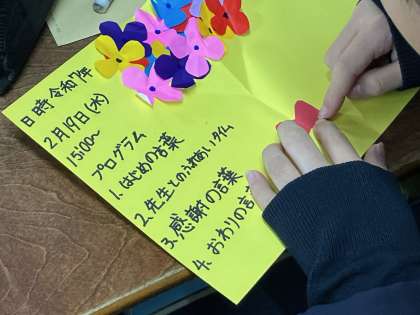 日時 令和7年
2月19日(水)
15:00~
プログラム
1. はじめの言葉
2. 先生とのふれあいタイム
3. 感謝の言葉
4. おわりの言